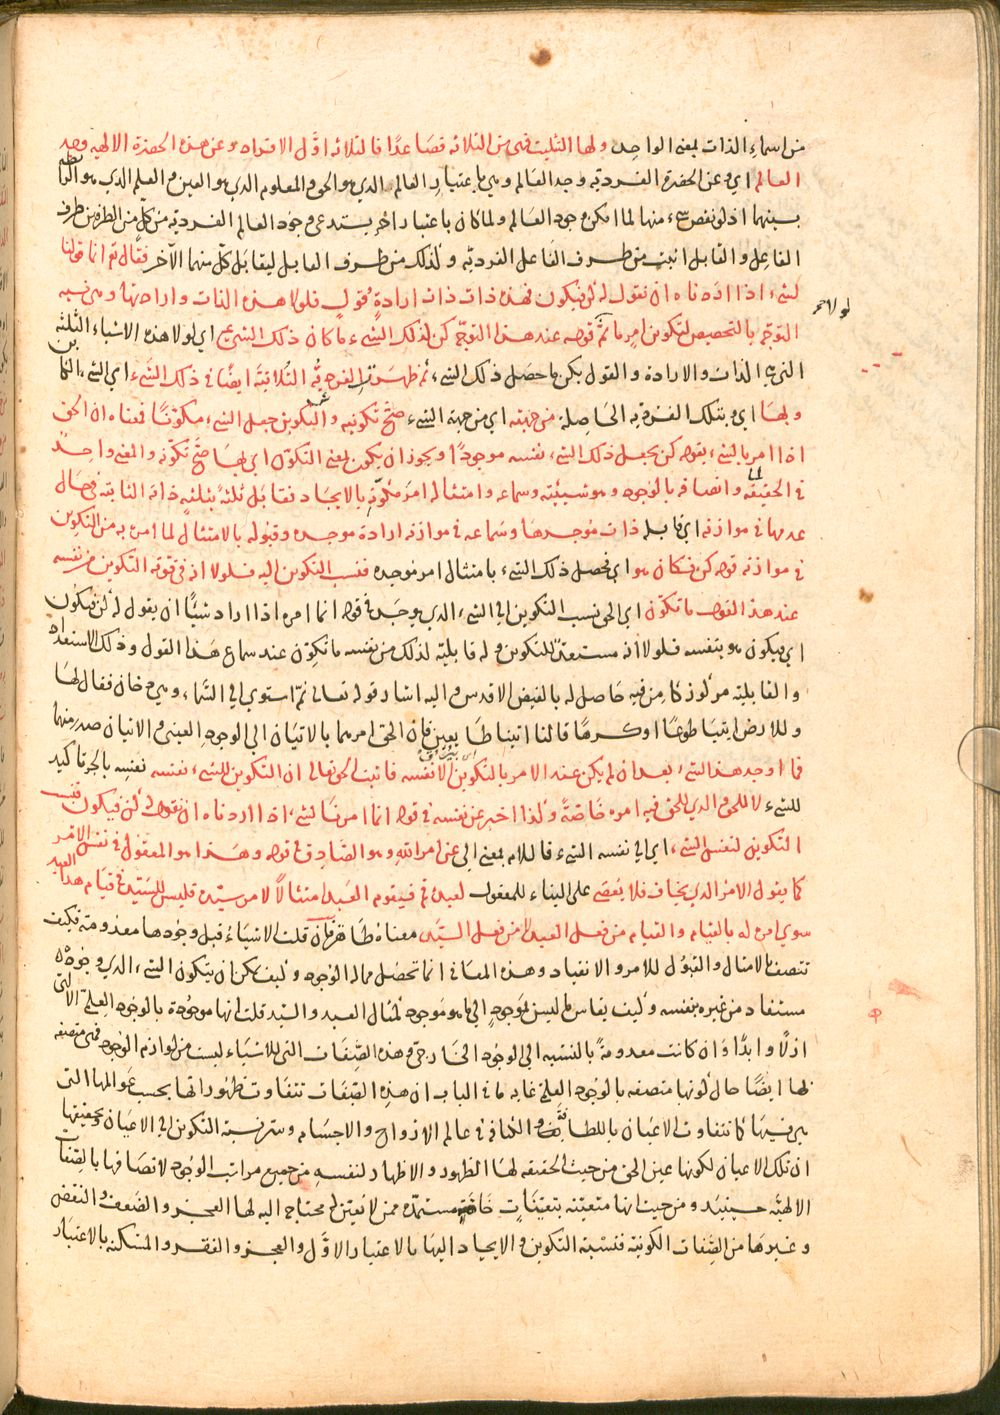 من اسماء الذات بمعنى الواحد ولها التثليث فهى من الثلاثة فصاعدًا فالثلاثة اوّل الافراد وعن هذه الحضرة الالهية وجد
العالم اى وعن الحضرة الفردية وجد العالم وهى باعتبار العالم الذى هو الحق والمعلوم الذى هو العين والعلم الذى هو الرابطة
بينهما اذ لو نقص شىء منها لما امكن وجود العالم ولما كان باعتبار اخر يستدعى وجود العالم الفردية من كل من الطرفين طرف
الفاعل والقابل اثبت من طرف الفاعل الفردية وكذلك من طرف القابل ليقابل كل منهما الآخر فقال ثم انما قولنا
لشىء اذا اردناه ان نقول له كن فيكون فهذه ذات ذات ارادة وقول فلولا هذه الذات وارادتها وهى نسبة
لولا خر
التوجّه بالتخصيص لتكوين امر ما ثم قوله عند هذا التوجّه كن لذلك الشىء ما كان ذلك الشىء اى لولا هذه الاشياء الثلثة
التى هى الذات والارادة والقول بكن ما حصل ذلك الشىء ثم ظهرت الفردية الثلاثية ايضًا فى ذلك الشىء اى الشىء الكائن
وبها اى وبتلك الفردية الحاصلة من جهته اى من جهة الشىء صحّ تكوينه والتكوين جعل الشىء مكوّنًا فمعناه ان الحق
اذا امر بالشىء بقوله كن يجعل ذلك الشىء نفسه موجودًا ويجوز ان يكون بمعنى التكوّن اى بها صحّ تكوّنه والمعنى واحد
فى الحقيقة واتصافه بالوجود وهو شيئيته وسماعه وامتثاله امر مكوّنه بالايجاد فقابل ثلثة بثلثة ذاته الثابتة فى حال
عدمها فى موازنة اى قابلة ذات موجدها وسماعه فى موازنة ارادة موجده وقبوله بالامتثال لما امره به من التكوين
فى موازنة قوله كن فكان هو اى فحصل ذلك الشىء بامتثال امر موجده فنسب التكوين اليه فلولا انه فى قوّته التكوين من نفسه
عند هذا القول ما تكوّن اى الحق نسب التكوين الى الشىء الذى يوجد فى قوله انما امره اذا اراد شيئًا ان يقول له كن فيكون
اى فيكون هو بنفسه فلولا انه مستعدّ للتكوين وله قابلية لذلك من نفسه ما تكون عند سماع هذا القول وذلك الاستعداد
والقابلية مركوز كامن فيه حاصل له بالفيض الاقدس واليه اشار قوله تعالى ثم استوى الى السماء وهى دخان فقال لها
وللارض ائتيا طوعًا او كرهًا قالتا اتينا طائعين فان الحق امرهما بالاتيان الى الوجود العينى والاتيان صدر منهما
فما اوجد هذا الشىء بعد ان لم يكن عند الامر بالتكوين الا نفسه فاثبت الحق تعالى ان التكوين للشىء نفسه نفسه بالجر تاكيد
للشىء لا للحق والذى للحق فيه امره خاصة ولذا اخبر عن نفسه فى قوله انما امرنا لشىء اذا اردناه ان نقول له كن فيكون فنسب
التكوين لنفس الشىء اى الى نفسه الشىء فاللام بمعنى الى عن امر الله وهو الصادق فى قوله وهذا هو المعقول فى نفس الامر
كما يقول الامر الذى يخاف فلا يعصى على البناء للمفعول لعبده قم فيقوم العبد امتثالًا لامر سيّده فليس للسيّد فى قيام هذا العبد
سوى امره له بالقيام والقيام من فعل العبد لا من فعل السيّد معناه ظاهر فان قلت الاشياء قبل وجودها معدومة فكيف
تتصف بالامتثال والقبول للامر والانقياد وهذه المعانى انما تحصل مما له الوجود وكيف يمكن ان يتكون الشىء الذى وجوده
مستفاد من غيره بنفسه وكيف يقاس ما ليس بموجود الى ما هو موجود كمثال العبد والسيّد قلت انها موجودة بالوجود العلمى الالٰهى
ازلًا وابدًا وان كانت معدومة بالنسبة الى الوجود الخارجى وهذه الصفات التى للاشياء ليست من لوازم الوجود فهى متصفة
بها ايضًا حال كونها متصفة بالوجود العلمى غاية ما فى الباب ان هذه الصفات تتفاوت ظهوراتها بحسب عوالمها التى
هى فيها كما تتفاوت الاعيان باللطافة والكثافة فى عالم الارواح والاجسام وسر نسبة التكوين الى الاعيان وتحقيقها
ان تلك الاعيان لكونها عين الحق من حيث الحقيقة لها الظهور والاظهار لنفسه من جميع مراتب الوجود لاتصافها بالصفات
الالهية حينئيذ ومن حيث انها متعينة بتعينات خاصة مستمدة ممن لا تعين له محتاجة اليه لها العجز والضعف والنقص
وغيرها من الصفات الكونية فنسبة التكوين والايجاد اليها بالاعتبار الاوّل والعجز والفقر والمسكنة بالاعتبار